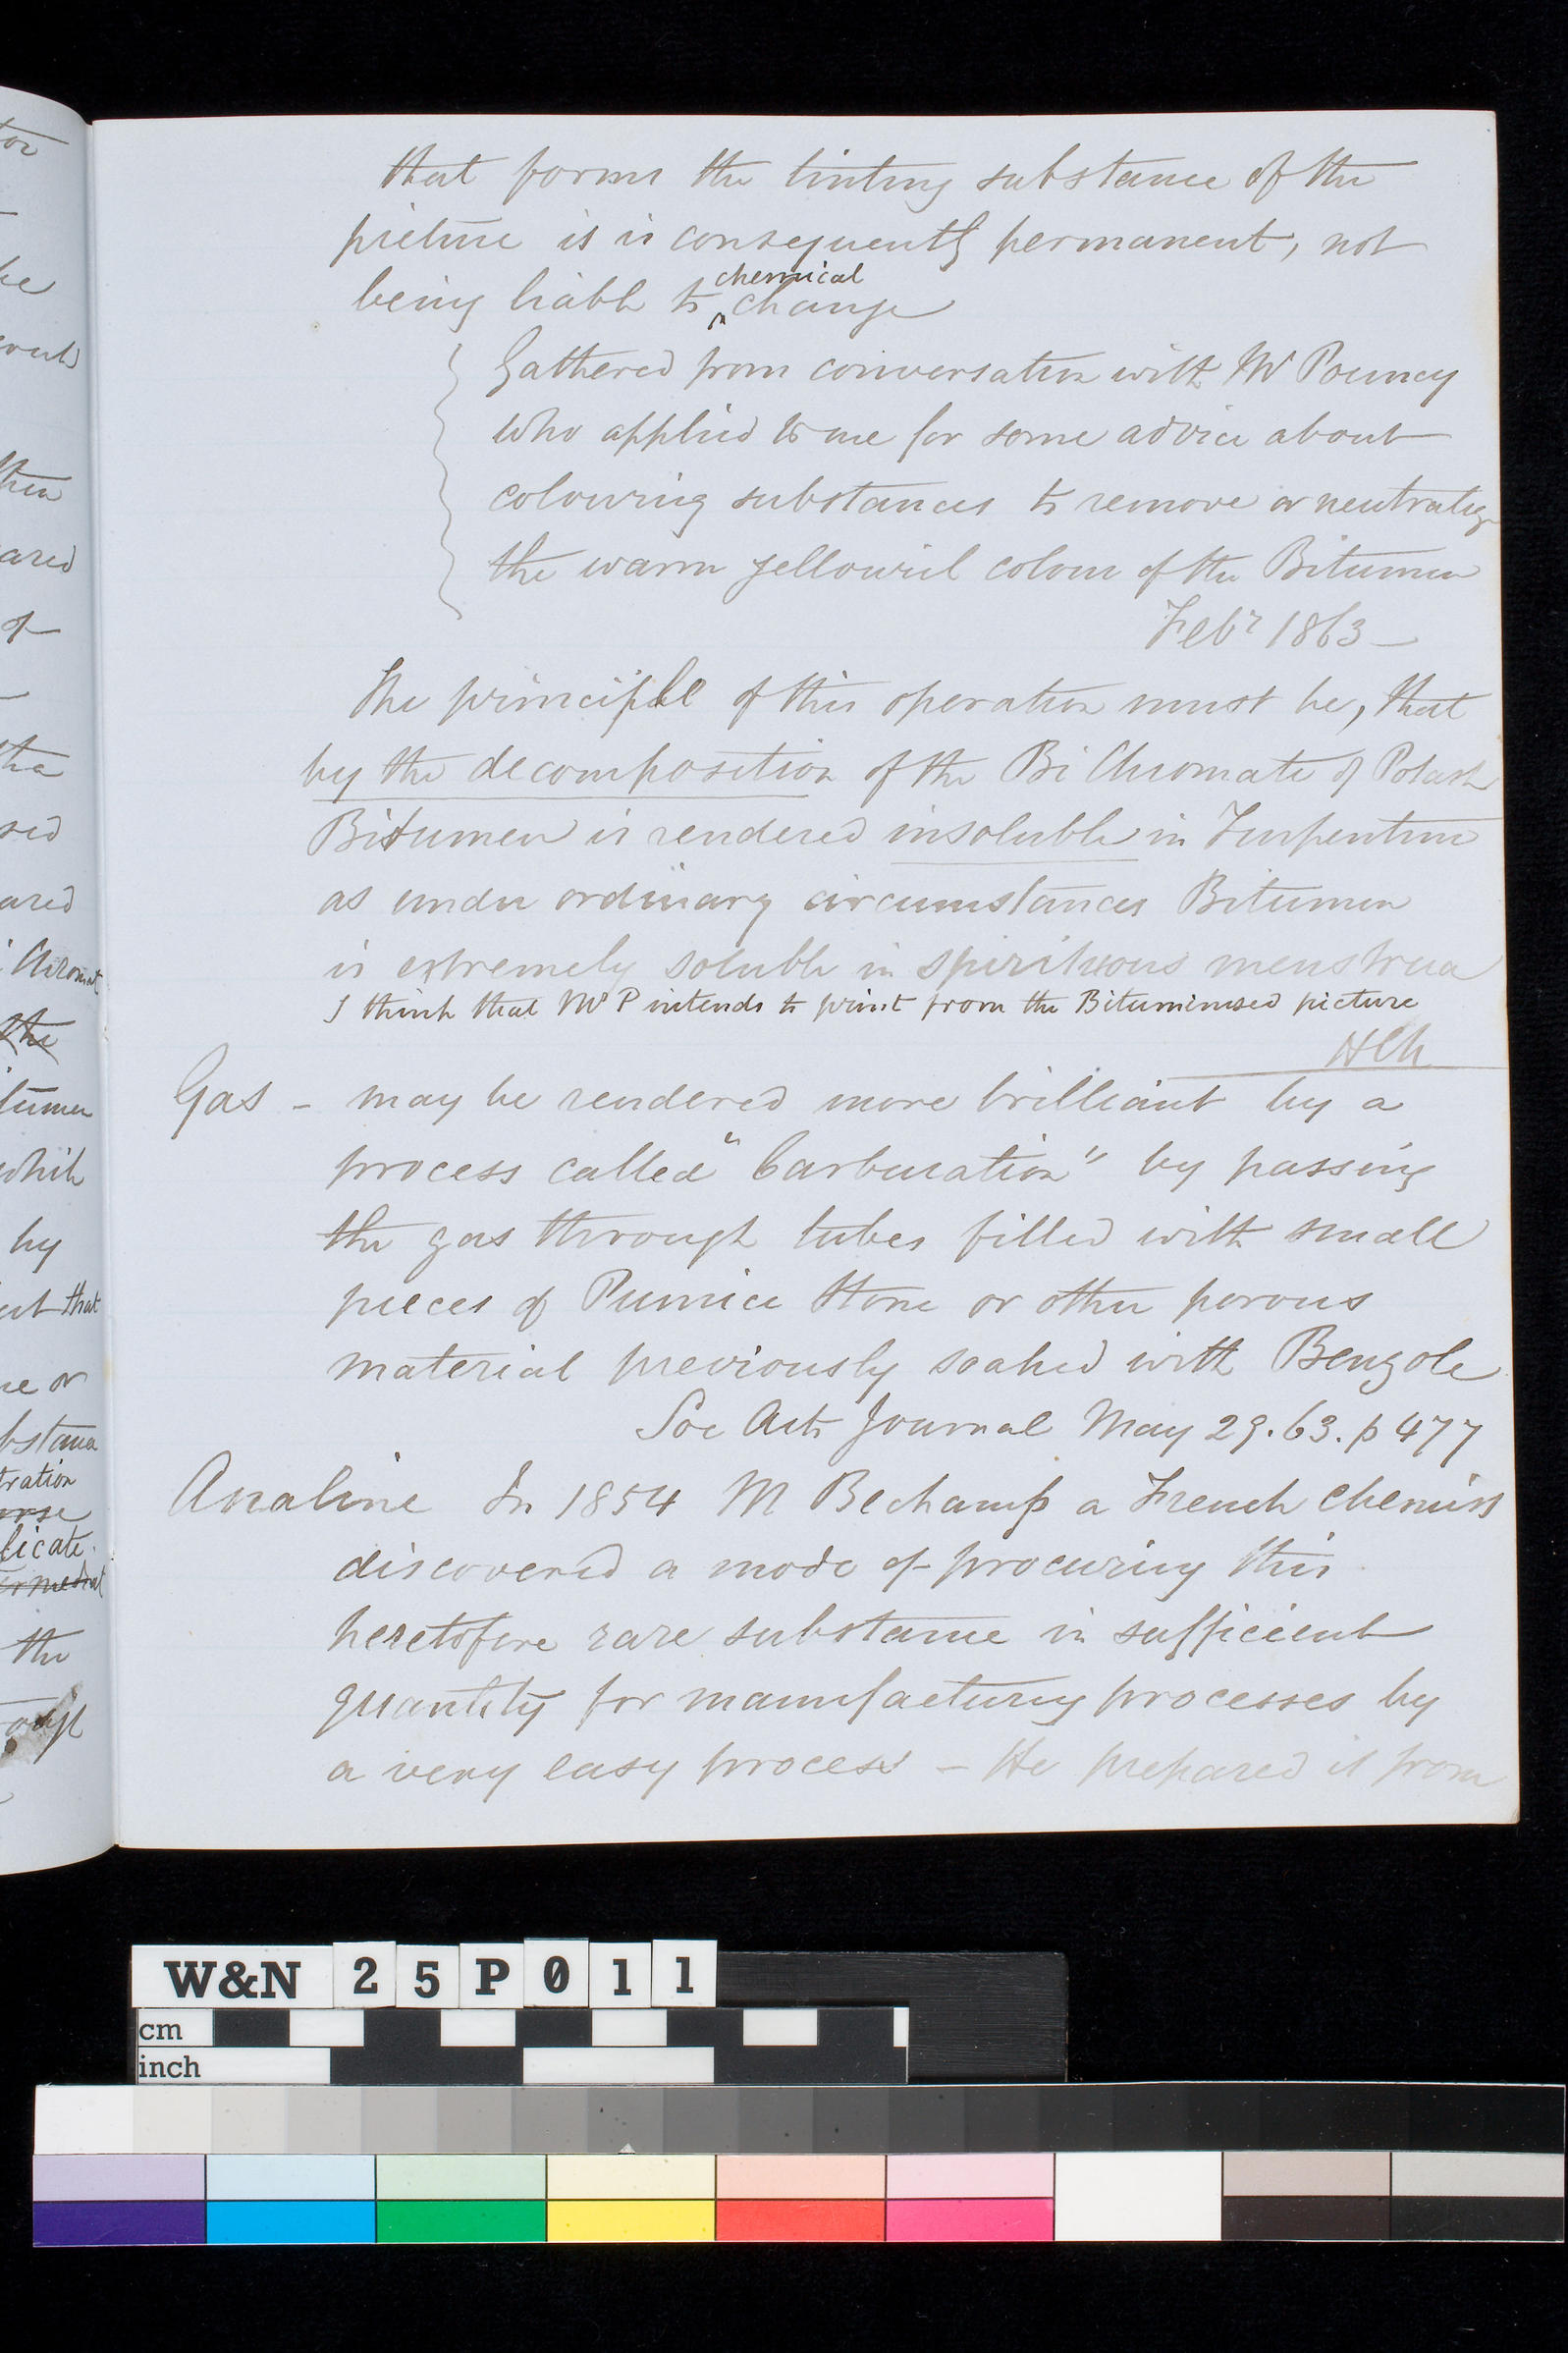 that forms the tinting substance of the
picture is is consequently permanent, not
being liable to ^ chemical change
Gathered from conversation with Mr Pouncy
who applied to me for some advice about
colouring substances to remove or neutralize
the warm yellowish colour of the Bitumen
Febr 1863 —
The principle of this operation must be, that
by the decomposition of the Bi Chromate of Potash
Bitumen is rendered insoluble in Turpentine
as under ordinary circumstances Bitumen
is extremely soluble in spirituous menstrua
I think that Mr P intends to print from the Bituminised picture
Gas - may be rendered more brilliant by a
process called "Carburation" by passing
the gas through tubes filled with small
pieces of Pumice Stone or other porous
material previously soaked with Benzole
Soc Arts Journal May 29. 63. p 477
Analine In 1854 M Bechamp a French Chemist
discovered a mode of procuring this
heretofore rare substance in sufficient
quantity for manufacturing processes by
a very easy process - He prepared it from
tor
he
then
ared
of
the
sed
ared
Chromat
the
itumen
which
by
that
ne or
bstance
tration
licate.
the
W&N 25P011
cm
inch